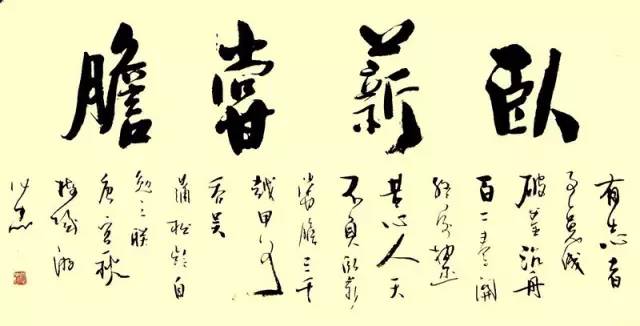 臥薪嘗膽
有志者
事竟成
破釜沉舟
百二秦關
終屬楚
苦心人天
不負臥薪
嘗膽三千
越甲可
吞吴
蒲松齡自
勉之聯
庚寅秋